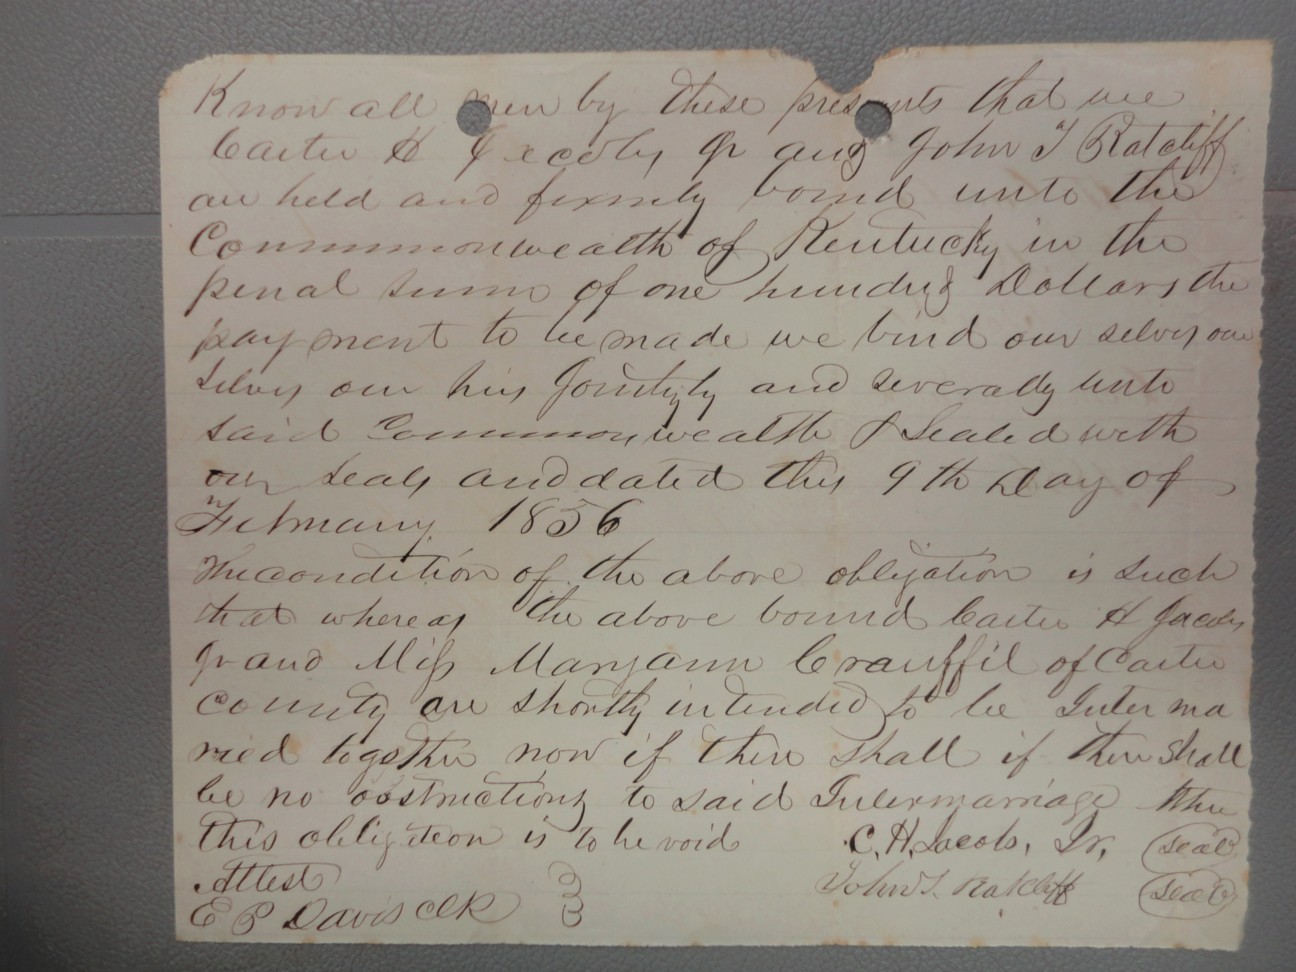 Know all men by these presents that we
Carter H Jacobs Jr and John T Ratcliff
are held and firmly bound unto the
Commonwealth of Kentucky in the
penal sum of one hundred Dollars the
payment to be made we bind our selves our
selves our his Jointly and severally unto
said Commonwealth & Sealed with
our seals and dated this 9th Day of
February 1856
The condition of the above obligation is such
that whereas the above bound Carter H Jacobs
Jr and Miss Maryann Crauffil of Carter
county are shortly intended to be Interma
ried together now if there shall if there shall
be no obstructions to said Intermarriage then
this obligation is to be void C. H. Jacobs, Jr. seal
Attest John T. Ratcliff seal
E P Davis clk